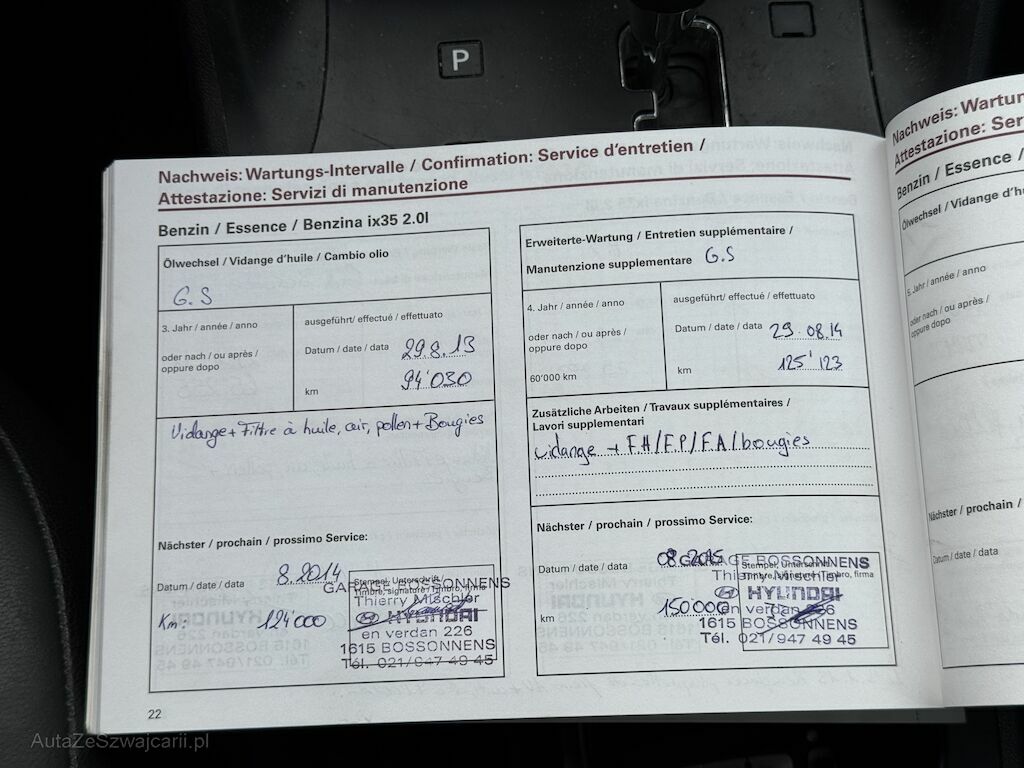 P
Nachweis: Wartungs-Intervalle / Confirmation: Service d'entretien /
Attestazione: Servizi di manutenzione
Benzin / Essence / Benzina ix35 2.0l
Ölwechsel / Vidange d'huile / Cambio olio
G.S
3. Jahr / année / anno
oder nach / ou après /
oppure dopo
ausgeführt/ effectué / effettuato
Datum / date / data 29.8.13
km 94'030
Vidange + Filtre à huile, air, pollen + Bougies
Nächster / prochain / prossimo Service:
Datum / date / data 8.2014
Km: 124'000
Stempel, Unterschrift
Timbre, signature / Timbro, firma
GARAGE BOSSONNENS
Thierry Mischler
HYUNDAI
en verdan 226
1615 BOSSONNENS
Tél. 021/947 49 45
22
Erweiterte-Wartung / Entretien supplémentaire /
Manutenzione supplementare G.S
4. Jahr / année / anno
oder nach / ou après /
oppure dopo
60'000 km
ausgeführt / effectué / effettuato
Datum / date / data 29.08.14
km 125'123
Zusätzliche Arbeiten / Travaux supplémentaires /
Lavori supplementari
vidange + F.H/F.P/F.A/bougies
Nächster / prochain / prossimo Service:
Datum / date / data 08.2015
km 150'000
Stempel, Unterschrift
Timbre, signature / Timbro, firma
GARAGE BOSSONNENS
Thierry Mischler
HYUNDAI
en verdan 226
1615 BOSSONNENS
Tél. 021/947 49 45
Nachweis: Wartun
Attestazione: Ser
Benzin / Essence /
Ölwechsel / Vidange d'hu
5. Jahr / année / anno
oder nach / ou après /
oppure dopo
Nächster / prochain /
Datum / date / data
AutaZeSzwajcarii.pl